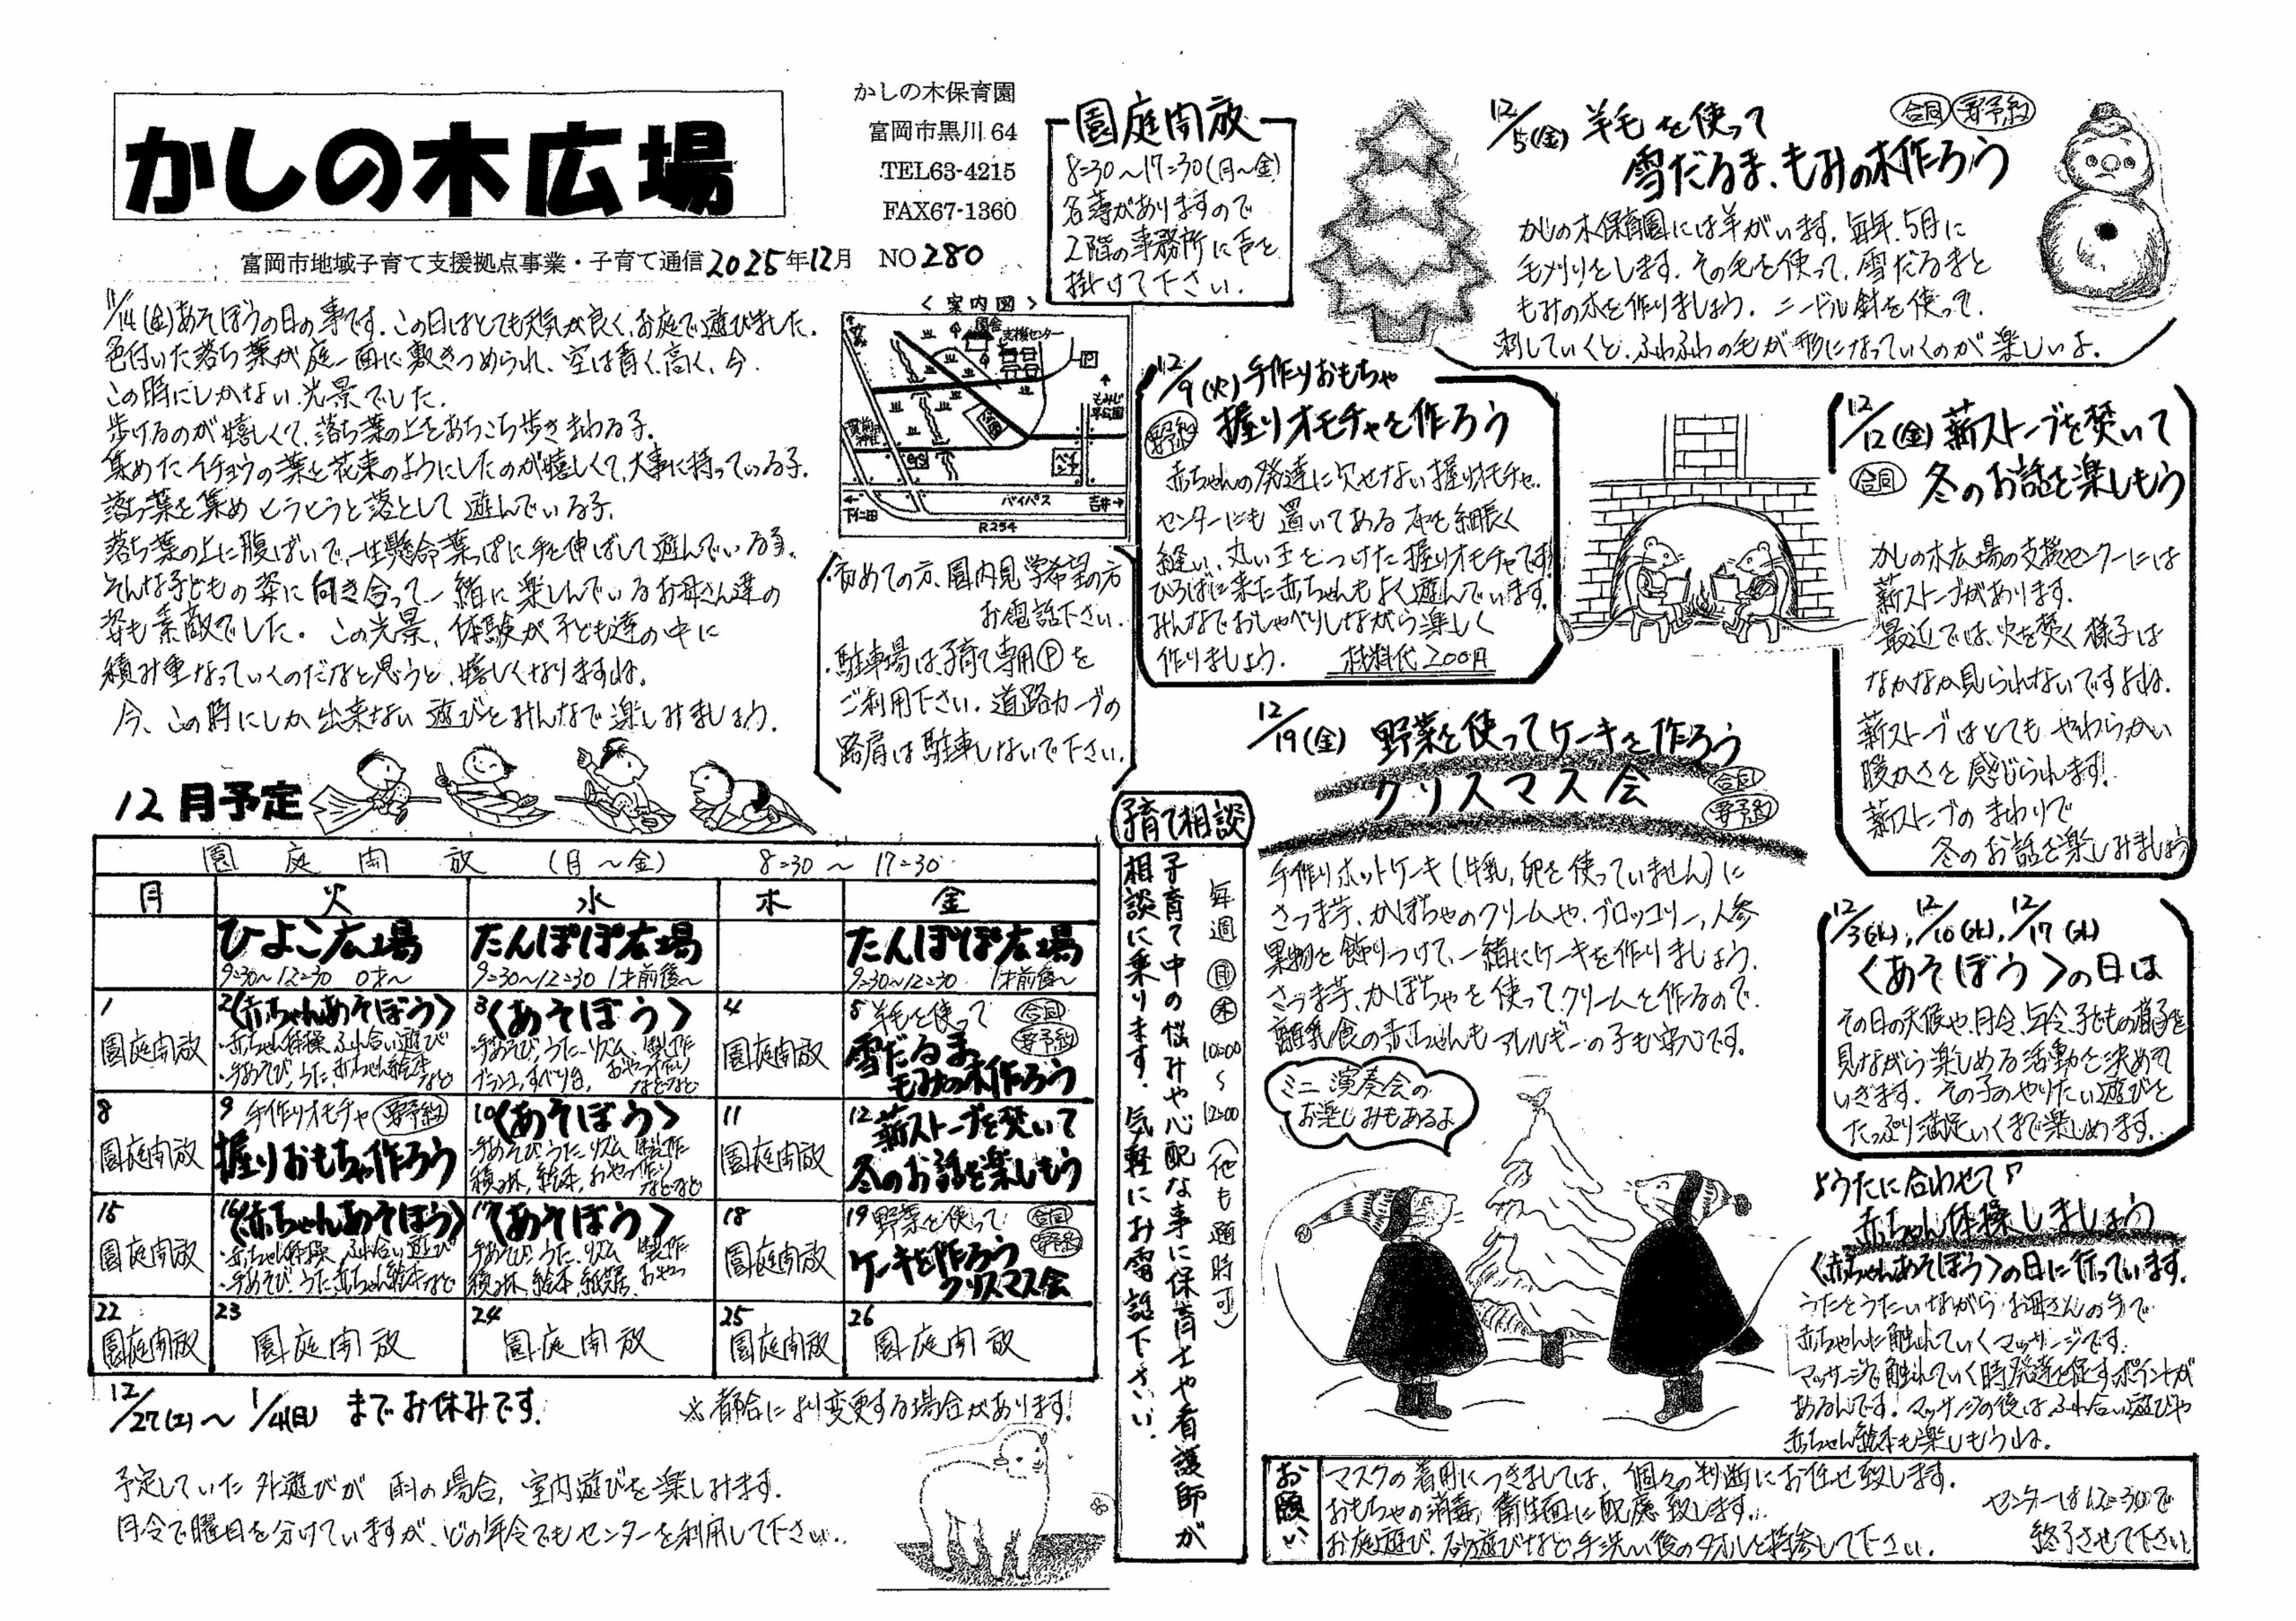 かしの木広場
富岡市地域子育て支援拠点事業・子育て通信2025年12月 NO280
かしの木保育園
富岡市黒川64
TEL63-4215
FAX67-1360
11/14(金)あそぼうの日の事です。この日はとても天気が良く、お庭で遊びました。
色付いた落ち葉が庭一面に敷きつめられ、空は青く、高く、今、
この時にしかない光景でした。
歩けるのが嬉しくて、落ち葉の上をあちこち歩きまわる子。
集めたイチョウの葉を花束のようにしたのが嬉しくて、大事に持っている子。
落ち葉を集めとうとうと落として遊んでいる子。
落ち葉の上に腹ばいで、一生懸命葉っぱに手を伸ばして遊んでいる子。
そんな子どもの姿に向き合って一緒に楽しんでいるお母さん達の
姿も素敵でした。この光景、体験が子ども達の中に
積み重なっていくのだなと思うと、嬉しくなりますね。
今、この時にしか出来ない遊びをみんなで楽しみましょう。
園庭開放
8:30～17:30(月～金)
名簿がありますので
2階の事務所に声を
掛けて下さい。
<案内図>
園舎
支援センター
P
もみじ平公園
貫前神社
バイパス
下仁田
吉井
R254
・初めての方、園内見学希望の方
お電話下さい。
・駐車場は、子育て専用Ⓟを
ご利用下さい。道路カーブの
路肩は駐車しないで下さい。
12/5(金) 羊毛を使って
合同 要予約
雪だるま、もみの木作ろう
かしの木保育園には羊がいます。毎年、5月に
毛刈りをします。その毛を使って、雪だるまと
もみの木を作りましょう。ニードル針を使って、
刺していくと、ふわふわの毛が形になっていくのが楽しいよ。
12/9(火)手作りおもちゃ
要予約 握りオモチャを作ろう
赤ちゃんの発達に欠せない握りオモチャ。
センターにも置いてある布を細長く
縫い、丸い玉をつけた握りオモチャです!
ひろばに来た赤ちゃんもよく遊んでいます。
みんなでおしゃべりしながら楽しく
作りましょう。 材料代200円
12/12(金)薪ストーブを焚いて
合同 冬のお話を楽しもう
かしの木広場の支援センターには
薪ストーブがあります。
最近では、火を焚く様子は
なかなか見られないですよね。
薪ストーブはとてもやわらかい
暖かさを感じられます!
薪ストーブのまわりで
冬のお話を楽しみましょう
12/19(金) 野菜を使ってケーキを作ろう
クリスマス会
合同
要予約
手作りホットケーキ(牛乳、卵を使っていません)に
さつま芋、かぼちゃのクリームや、ブロッコリー、人参
果物を飾りつけて、一緒にケーキを作りましょう。
さつま芋、かぼちゃを使ってクリームを作るので、
離乳食の赤ちゃんもアレルギーの子も安心です。
ミニ演奏会の
お楽しみもあるよ
12/3(水)、12/10(水)、12/17(水)
<あそぼう>の日は
その日の天候や、月令、年令、子どもの様子を
見ながら楽しめる活動を決めて
いきます。その子のやりたい遊びを
たっぷり満足いくまで楽しめます。
♪うたに合わせて♪
赤ちゃん体操しましょう
<赤ちゃんあそぼう>の日に行っています。
うたをうたいながらお母さんの手で
赤ちゃんに触れていくマッサージです。
マッサージで触れていく時発達を促すポイントが
あるんです!マッサージの後は、ふれ合い遊びや
赤ちゃん絵本も楽しもうね。
子育て相談
毎週㊊㊍10:00～12:00(他も随時可)
子育て中の悩みや心配な事に保育士や看護師が
相談に乗ります。気軽にお電話下さい。
12月予定
園庭開放 (月～金) 8:30～17:30
月 火 水 木 金
ひよこ広場
9:30～12:30 0才～
たんぽぽ広場
9:30～12:30 1才前後～
たんぽぽ広場
9:30～12:30 1才前後～
1
園庭開放
2<赤ちゃんあそぼう>
・赤ちゃん体操、ふれ合い遊び
・手あそび、うた、赤ちゃん絵本など
3<あそぼう>
手あそび、うた、リズム 製作
ブランコ、すべり台、おやつ作りなどなど
4
園庭開放
5 羊毛を使って 合同 要予約
雪だるま、
もみの木作ろう
8
園庭開放
9 手作りオモチャ 要予約
握りおもちゃ作ろう
10<あそぼう>
手あそび、うた、リズム 製作
積み木、絵本、おやつ作りなどなど
11
園庭開放
12 薪ストーブを焚いて
冬のお話を楽しもう
15
園庭開放
16<赤ちゃんあそぼう>
・赤ちゃん体操、ふれ合い遊び
・手あそび、うた、赤ちゃん絵本など
17<あそぼう>
手あそび、うた、リズム 製作
積み木、絵本、紙芝居、おやつ
18
園庭開放
19 野菜を使って 合同 要予約
ケーキを作ろう
クリスマス会
22
園庭開放
23
園庭開放
24
園庭開放
25
園庭開放
26
園庭開放
12/27(土)～1/4(日) までお休みです。
※都合により変更する場合があります!
予定していた外遊びが雨の場合、室内遊びを楽しみます。
月令で曜日を分けていますが、どの年令でもセンターを利用して下さい。
お願い
マスクの着用につきましては、個々の判断にお任せ致します。
おもちゃの消毒、衛生面に配慮致します。
お庭遊び、砂遊びなど、手洗い後のタオルを持参して下さい。
センターは12:30で
終了させて下さい。